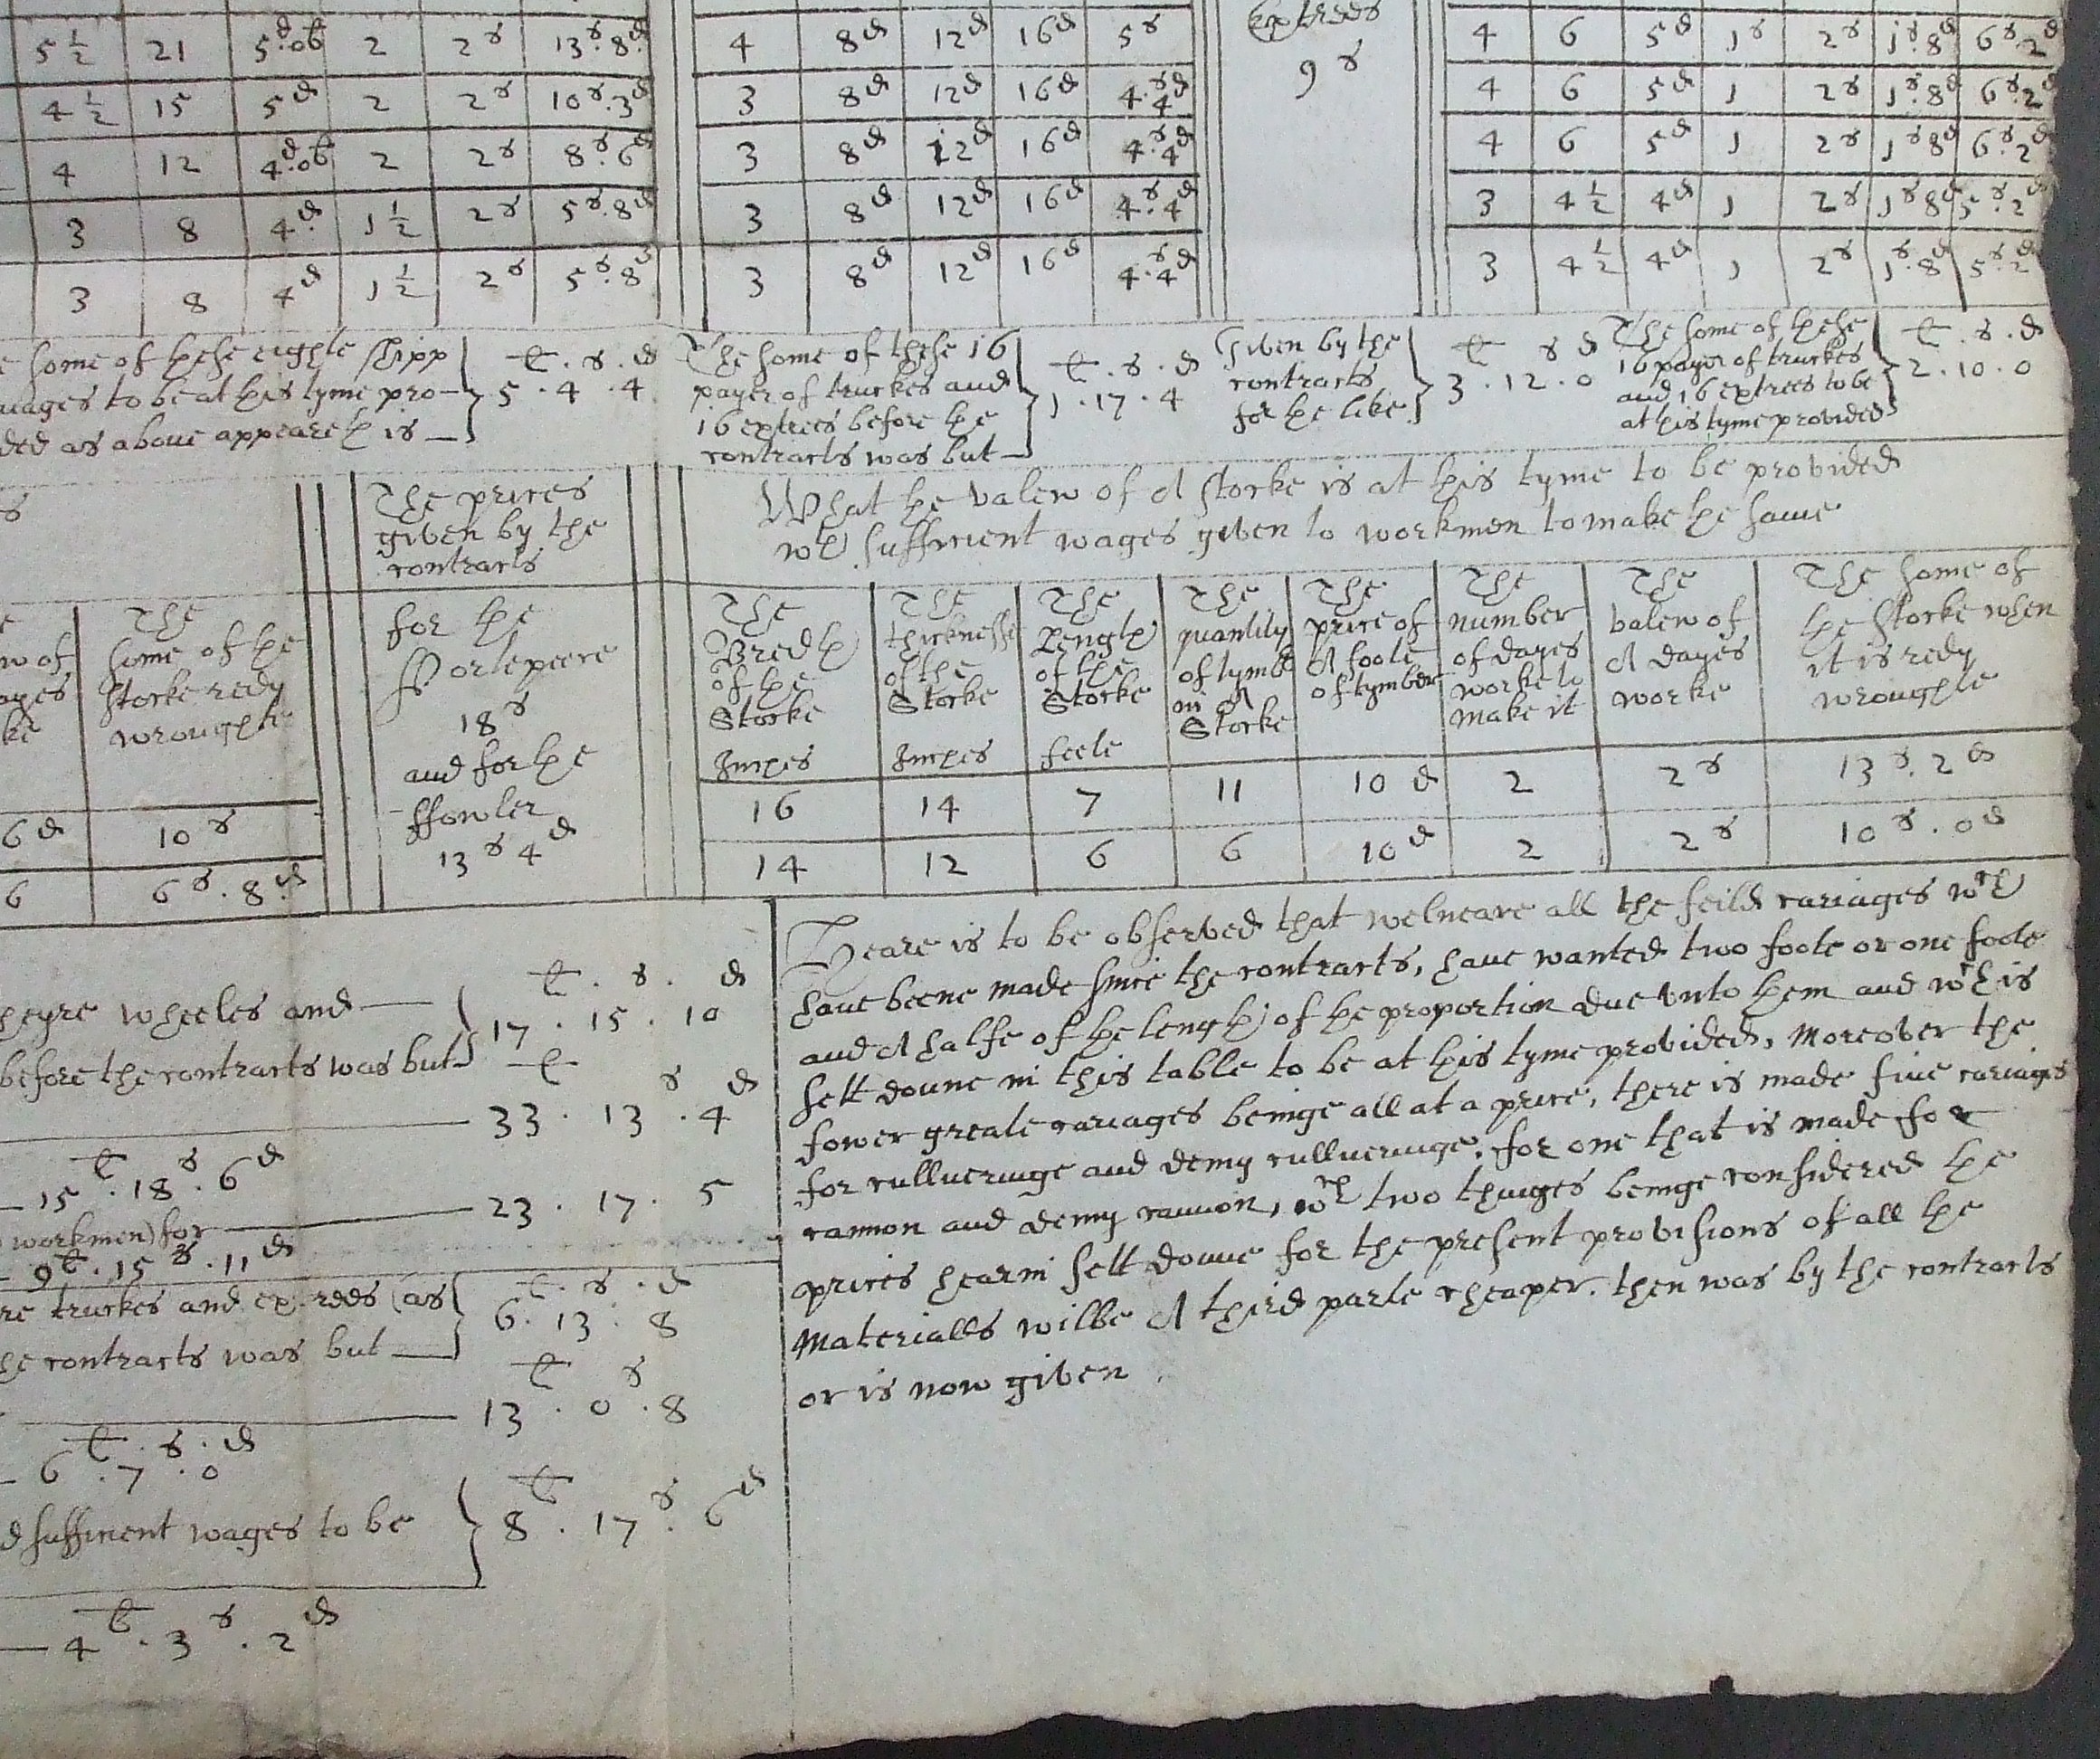 5 ½ | 21 | 5d.ob | 2 | 2s | 13s.8d
4 ½ | 15 | 5d | 2 | 2s | 10s.3d
4 | 12 | 4d.ob | 2 | 2s | 8s.6d
3 | 8 | 4d | 1 ½ | 2s | 5s.8d
3 | 8 | 4d | 1 ½ | 2s | 5s.8d
4 | 8d | 12d | 16d | 5s
3 | 8d | 12d | 16d | 4s.4d
3 | 8d | 12d | 16d | 4s.4d
3 | 8d | 12d | 16d | 4s.4d
3 | 8d | 12d | 16d | 4s.4d
Extrees
9s
4 | 6 | 5d | 1s | 2s | 1s.8d | 6s.2d
4 | 6 | 5d | 1 | 2s | 1s.8d | 6s.2d
4 | 6 | 5d | 1 | 2s | 1s 8d | 6s.2d
3 | 4 ½ | 4d | 1 | 2s | 1s 8d | 5s.2d
3 | 4 ½ | 4d | 1 | 2s | 1s.8d | 5s.2d
some of these eighte shipp
to be at this tyme pro-
ded as above appeareth is
li . s . d
5 . 4 . 4
The some of these 16
payer of truckes and
16 extrees before the
contracts was but
li . s . d
1 . 17 . 4
Given by the
contracts
for the like
li s d
3 . 12 . 0
The some of these
16 payer of truckes
and 16 extrees to be
at this tyme provided
li . s . d
2 . 10 . 0
The prices
given by the
contracts
for the
Portepeece
18s
and for the
ffowler
13s 4d
What the valew of A stocke is at this tyme to be provided
wth sufficient wages given to workmen to make the same
The
some of the
stocke redy
wroughte
6d | 10s
6 | 6s.8d
The
Bredth
of the
Stocke
Inches
The
thicknesse
of the
Stocke
Inches
The
Length
of the
Stocke
feete
The
quantity
of tymber
in A
Stocke
The
price of
A foote
of tymber
The
number
of dayes
worke to
make it
The
valew of
A dayes
worke
The some of
the stocke when
it is redy
wroughte
16 | 14 | 7 | 11 | 10d | 2 | 2s | 13s.2d
14 | 12 | 6 | 6 | 10d | 2 | 2s | 10s.0d
theyre wheeles and
before the contracts was but
li . s . d
17 . 15 . 10
li s d
33 . 13 . 4
15li . 18s . 6d
workmen) for
23 . 17 . 5
9li . 15s . 11d
truckes and extrees (as
the contracts was but
li . s . d
6 . 13 . 8
li s
13 . 0 . 8
li . s . d
6 . 7 . 0
d sufficient wages to be
8li . 17s . 6d
4li . 3s . 2d
Heare is to be observed that welneare all the feild cariages wch
have beene made since the contracts, have wanted two foote or one foote
and A halfe of the length of the proportion due unto them and wch is
sett downe in this table to be at this tyme provided, Moreover the
fower greate cariages beinge all at a price, there is made five cariages
for cullveringe and demy cullveringe, for one that is made for
cannon and demy cannon, wch two thinges beinge considered the
prices hearin sett downe for the present provisions of all the
Materialls wilbe A third parte cheaper, then was by the contracts
or is now given